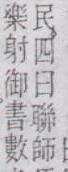 民四曰聯師
樂射御書數